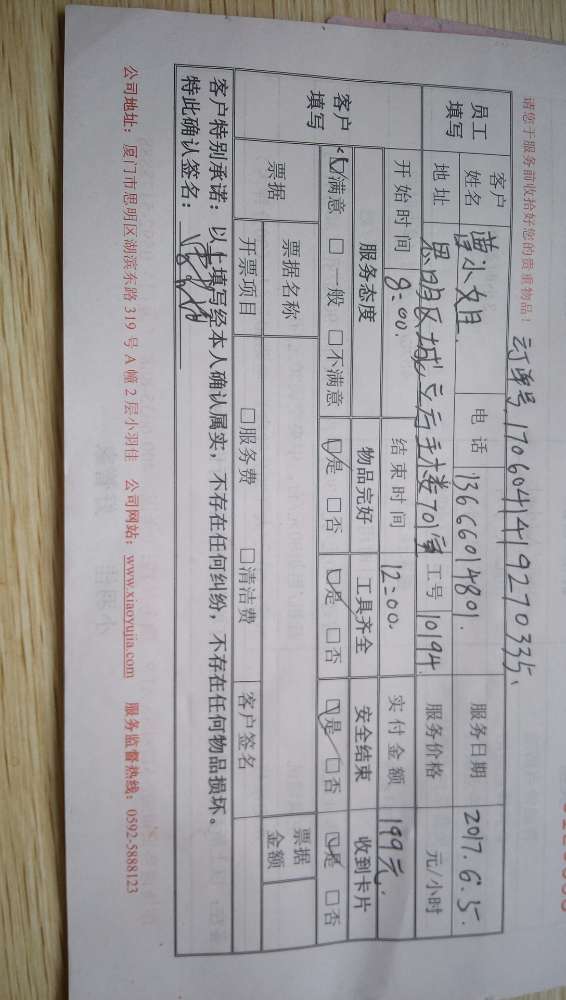 请您于服务前收拾好您的贵重物品！ 订单号 17060414192703​35.
员工填写 客户姓名 电话 13666014801. 服务日期 2017.6.5.
地址 思明区 701室 工号 10194. 服务价格 元/小时
开始时间 8:00. 结束时间 12:00. 实付金额 199元.
客户填写 服务态度 物品完好 工具齐全 安全结束 收到卡片
满意 □一般 □不满意 是 □否 是 □否 是 □否 是 □否
票据 票据名称 票据金额
开票项目 □服务费 □清洁费 客户签名
客户特别承诺：以上填写经本人确认属实，不存在任何纠纷，不存在任何物品损坏。
特此确认签名：
公司地址：厦门市思明区湖滨东路 319 号 A 幢 2 层小羽佳 公司网站：www.xiaoyujia.com 服务监督热线：0592-5888123